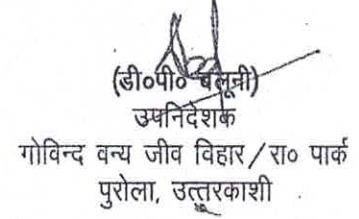 (डी०पी० बलूनी)
उपनिदेशक
गोविन्द वन्य जीव विहार/रा० पार्क
पुरोला, उत्तरकाशी